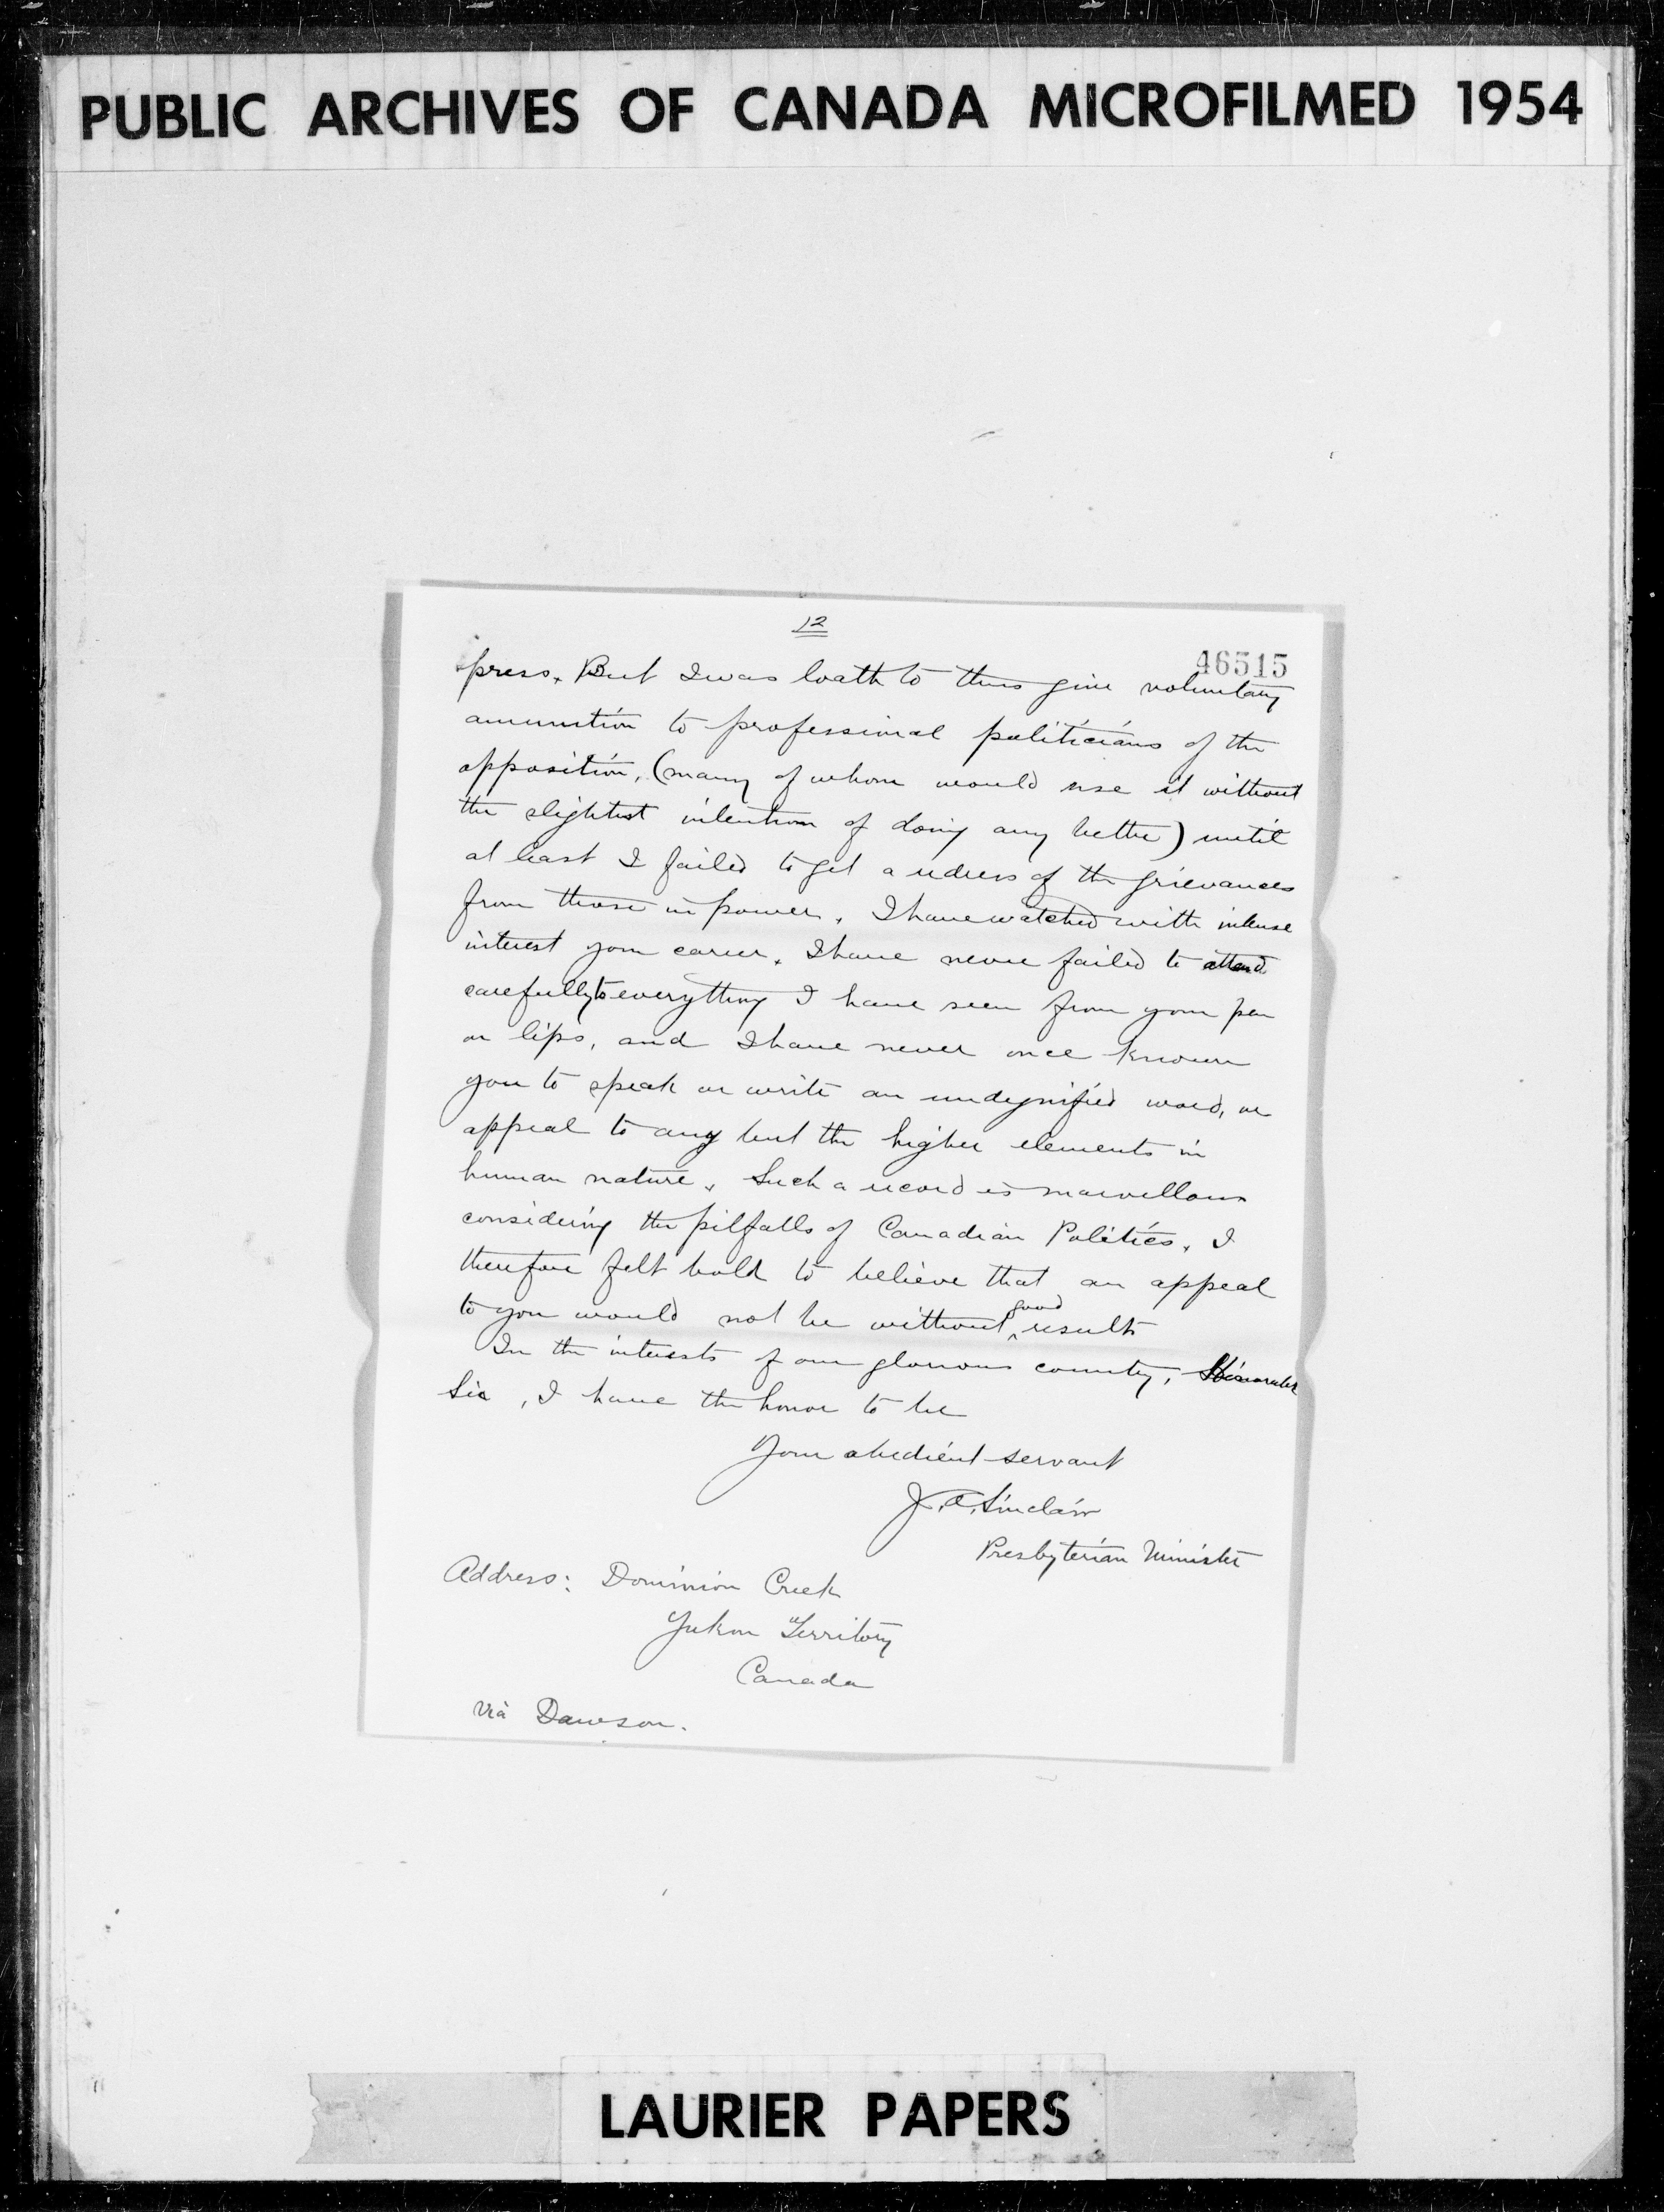 PUBLIC ARCHIVES OF CANADA MICROFILMED 1954
12
46515
press. But I was loath to thus give voluntary
ammunition to professional politicians of the
opposition, (many of whom would use it without
the slightest intention of doing any better) until
at least I failed to get a redress of the grievances
from those in power. I have watched with intense
interest your career. I have never failed to attend
carefully to everything I have seen from your pen
or lips, and I have never once known
you to speak or write an undignified word, or
appeal to any but the higher elements in
human nature. Such a record is marvellous
considering the pitfalls of Canadian Politics. I
therefore felt bold to believe that an appeal
to you would not be without good results
In the interests of our glorious country, Honorable
Sir, I have the honor to be
Your obedient servant
J. A. Sinclair
Presbyterian Minister
Address: Dominion Creek
Yukon Territory
Canada
Via Dawson.
LAURIER PAPERS